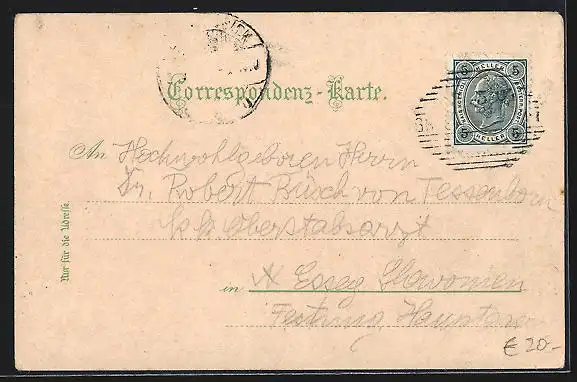 Correspondenz-Karte.
5 HELLER 5
5 HELLER 5
An Hochwohlgeboren Herrn
Dr. Robert Büsch von Tessenborn
k k Oberstabsarzt
Nur für die Adresse.
in Esseg Slawonien
Festung,
€ 20.-